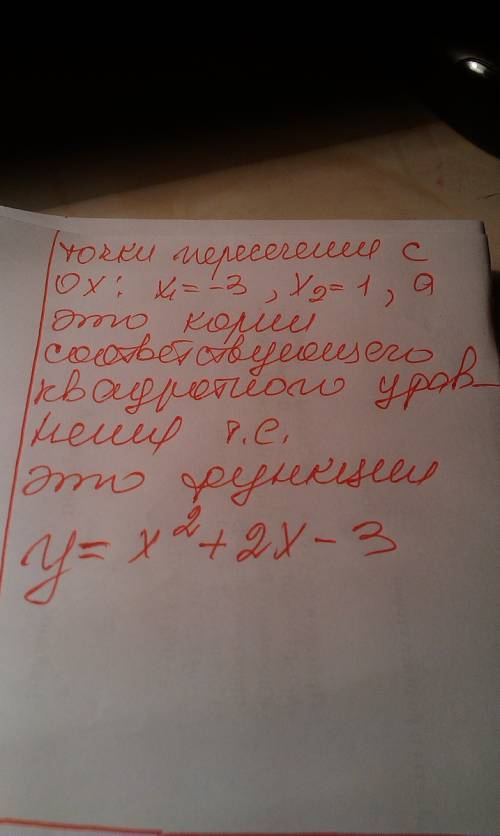 точки пересечения с
OX: x₁=-3, x₂=1, а
это корни
соответствующего
квадратного урав-
нения т.е.
это функция
y = x² + 2x - 3